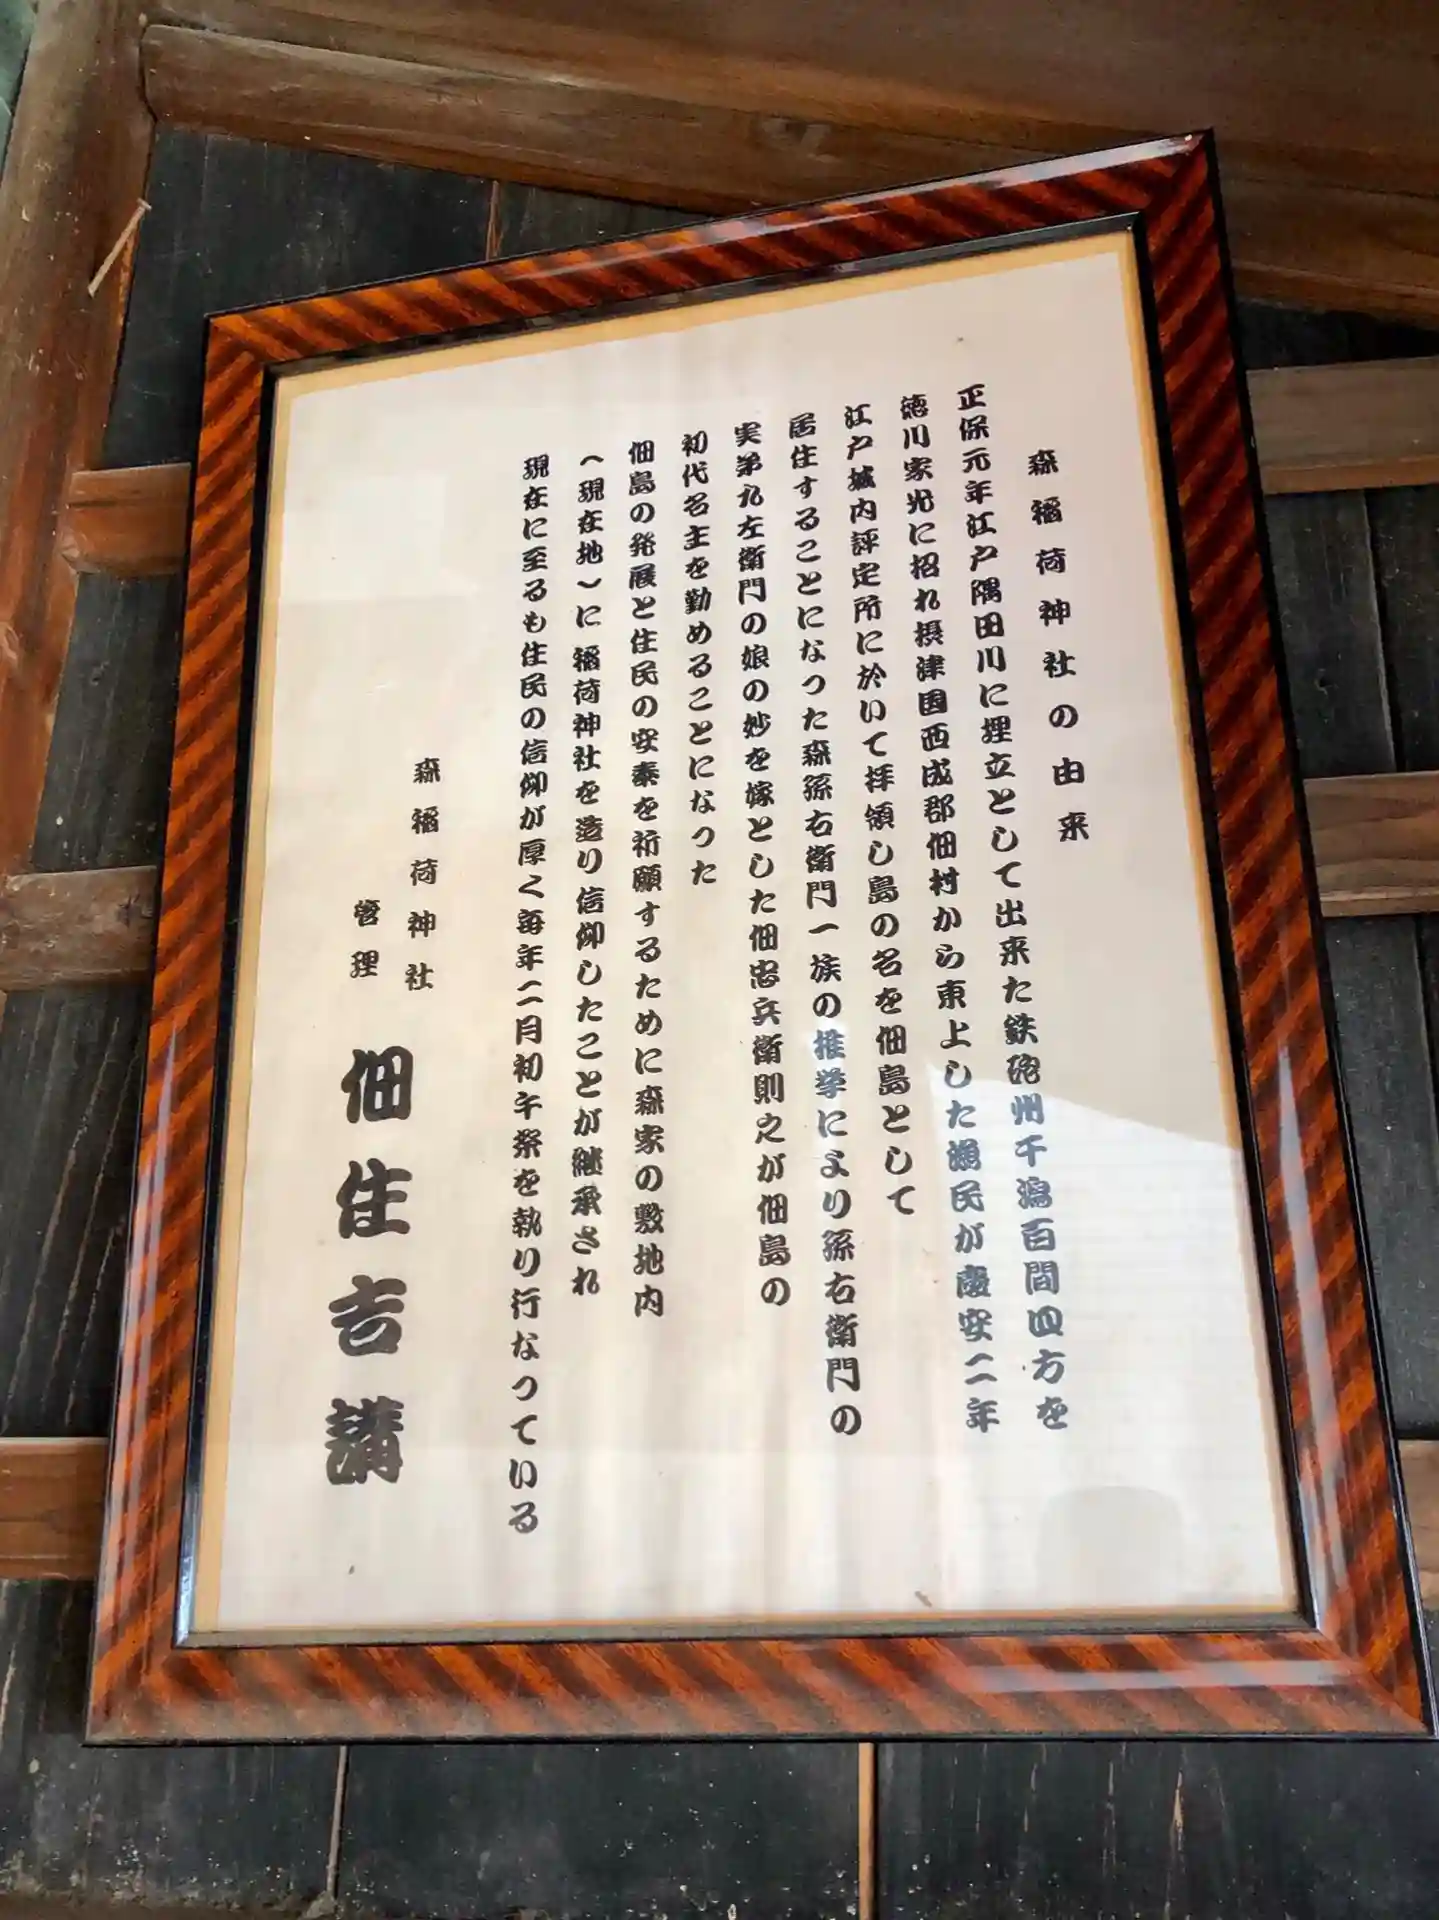 森稲荷神社の由来
正保元年江戸隅田川に埋立として出来た鉄砲州干潟百間四方を
徳川家光に招れ摂津国西成郡佃村から東上した漁民が慶安二年
江戸城内評定所に於いて拝領し島の名を佃島として
居住することになった森孫右衛門一族の推挙により孫右衛門の
実弟九左衛門の娘の妙を嫁とした佃忠兵衛則之が佃島の
初代名主を勤めることになった
佃島の発展と住民の安泰を祈願するために森家の敷地内
(現在地)に稲荷神社を造り信仰したことが継承され
現在に至るも住民の信仰が厚く毎年二月初午祭を執り行なっている
森稲荷神社
管理
佃住吉講